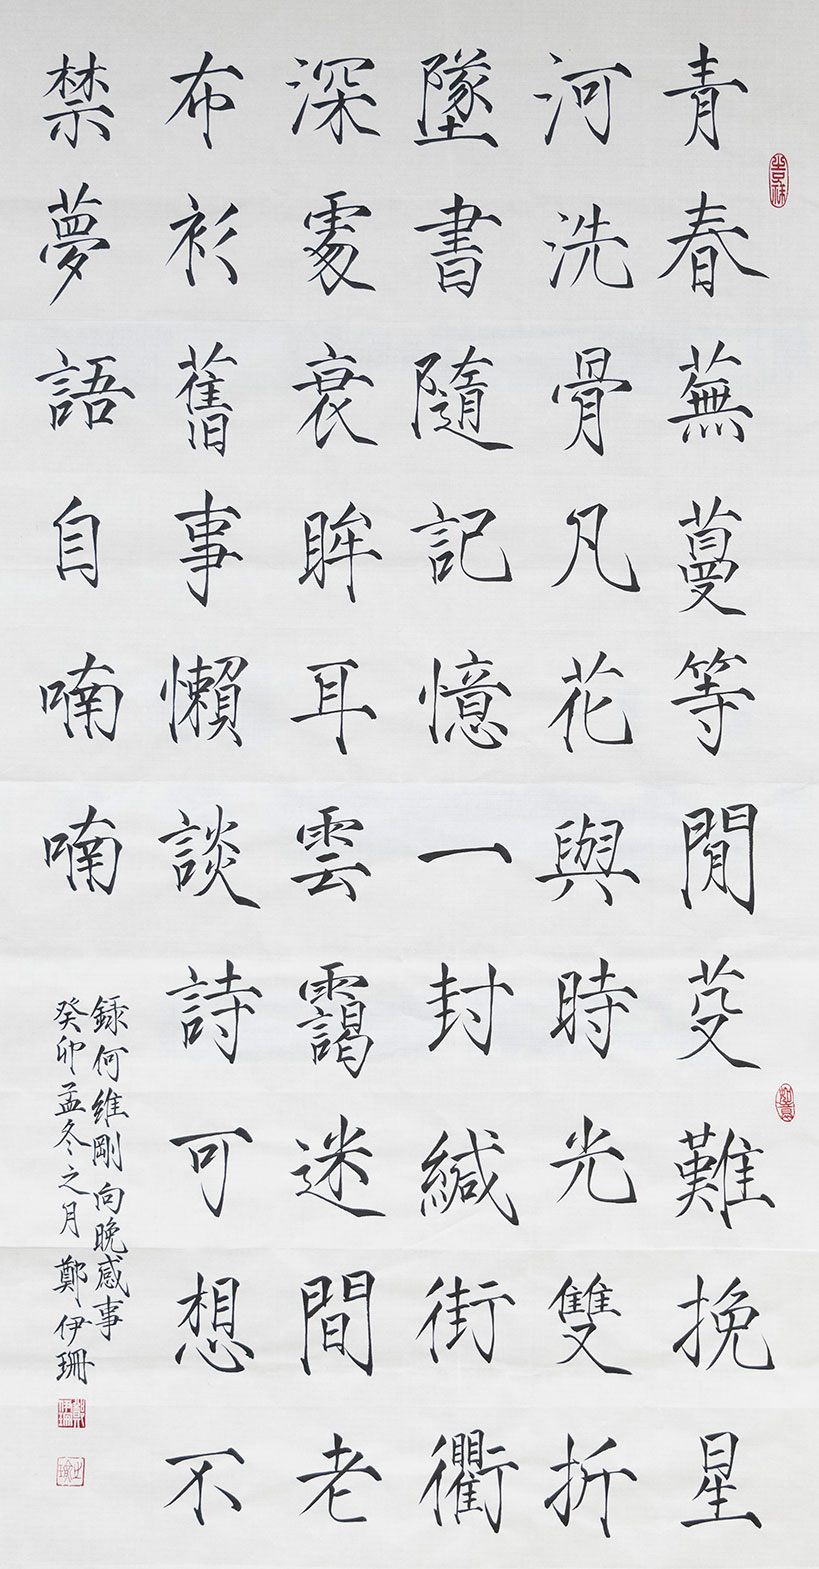 青春蕪蔓等閒芟難挽星
河洗骨凡花與時光雙折
墜書隨記憶一封緘街衢
深處衰眸耳雲靄迷間老
布衫舊事懶談詩可想不
禁夢語自喃喃
録何維剛向晚感事
癸卯孟冬之月鄭伊珊
吉祥
如意
鄭伊珊